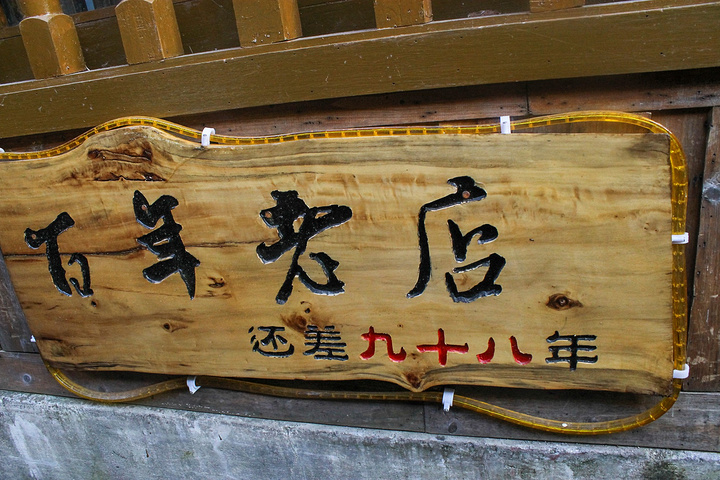 百年老店
还差九十八年